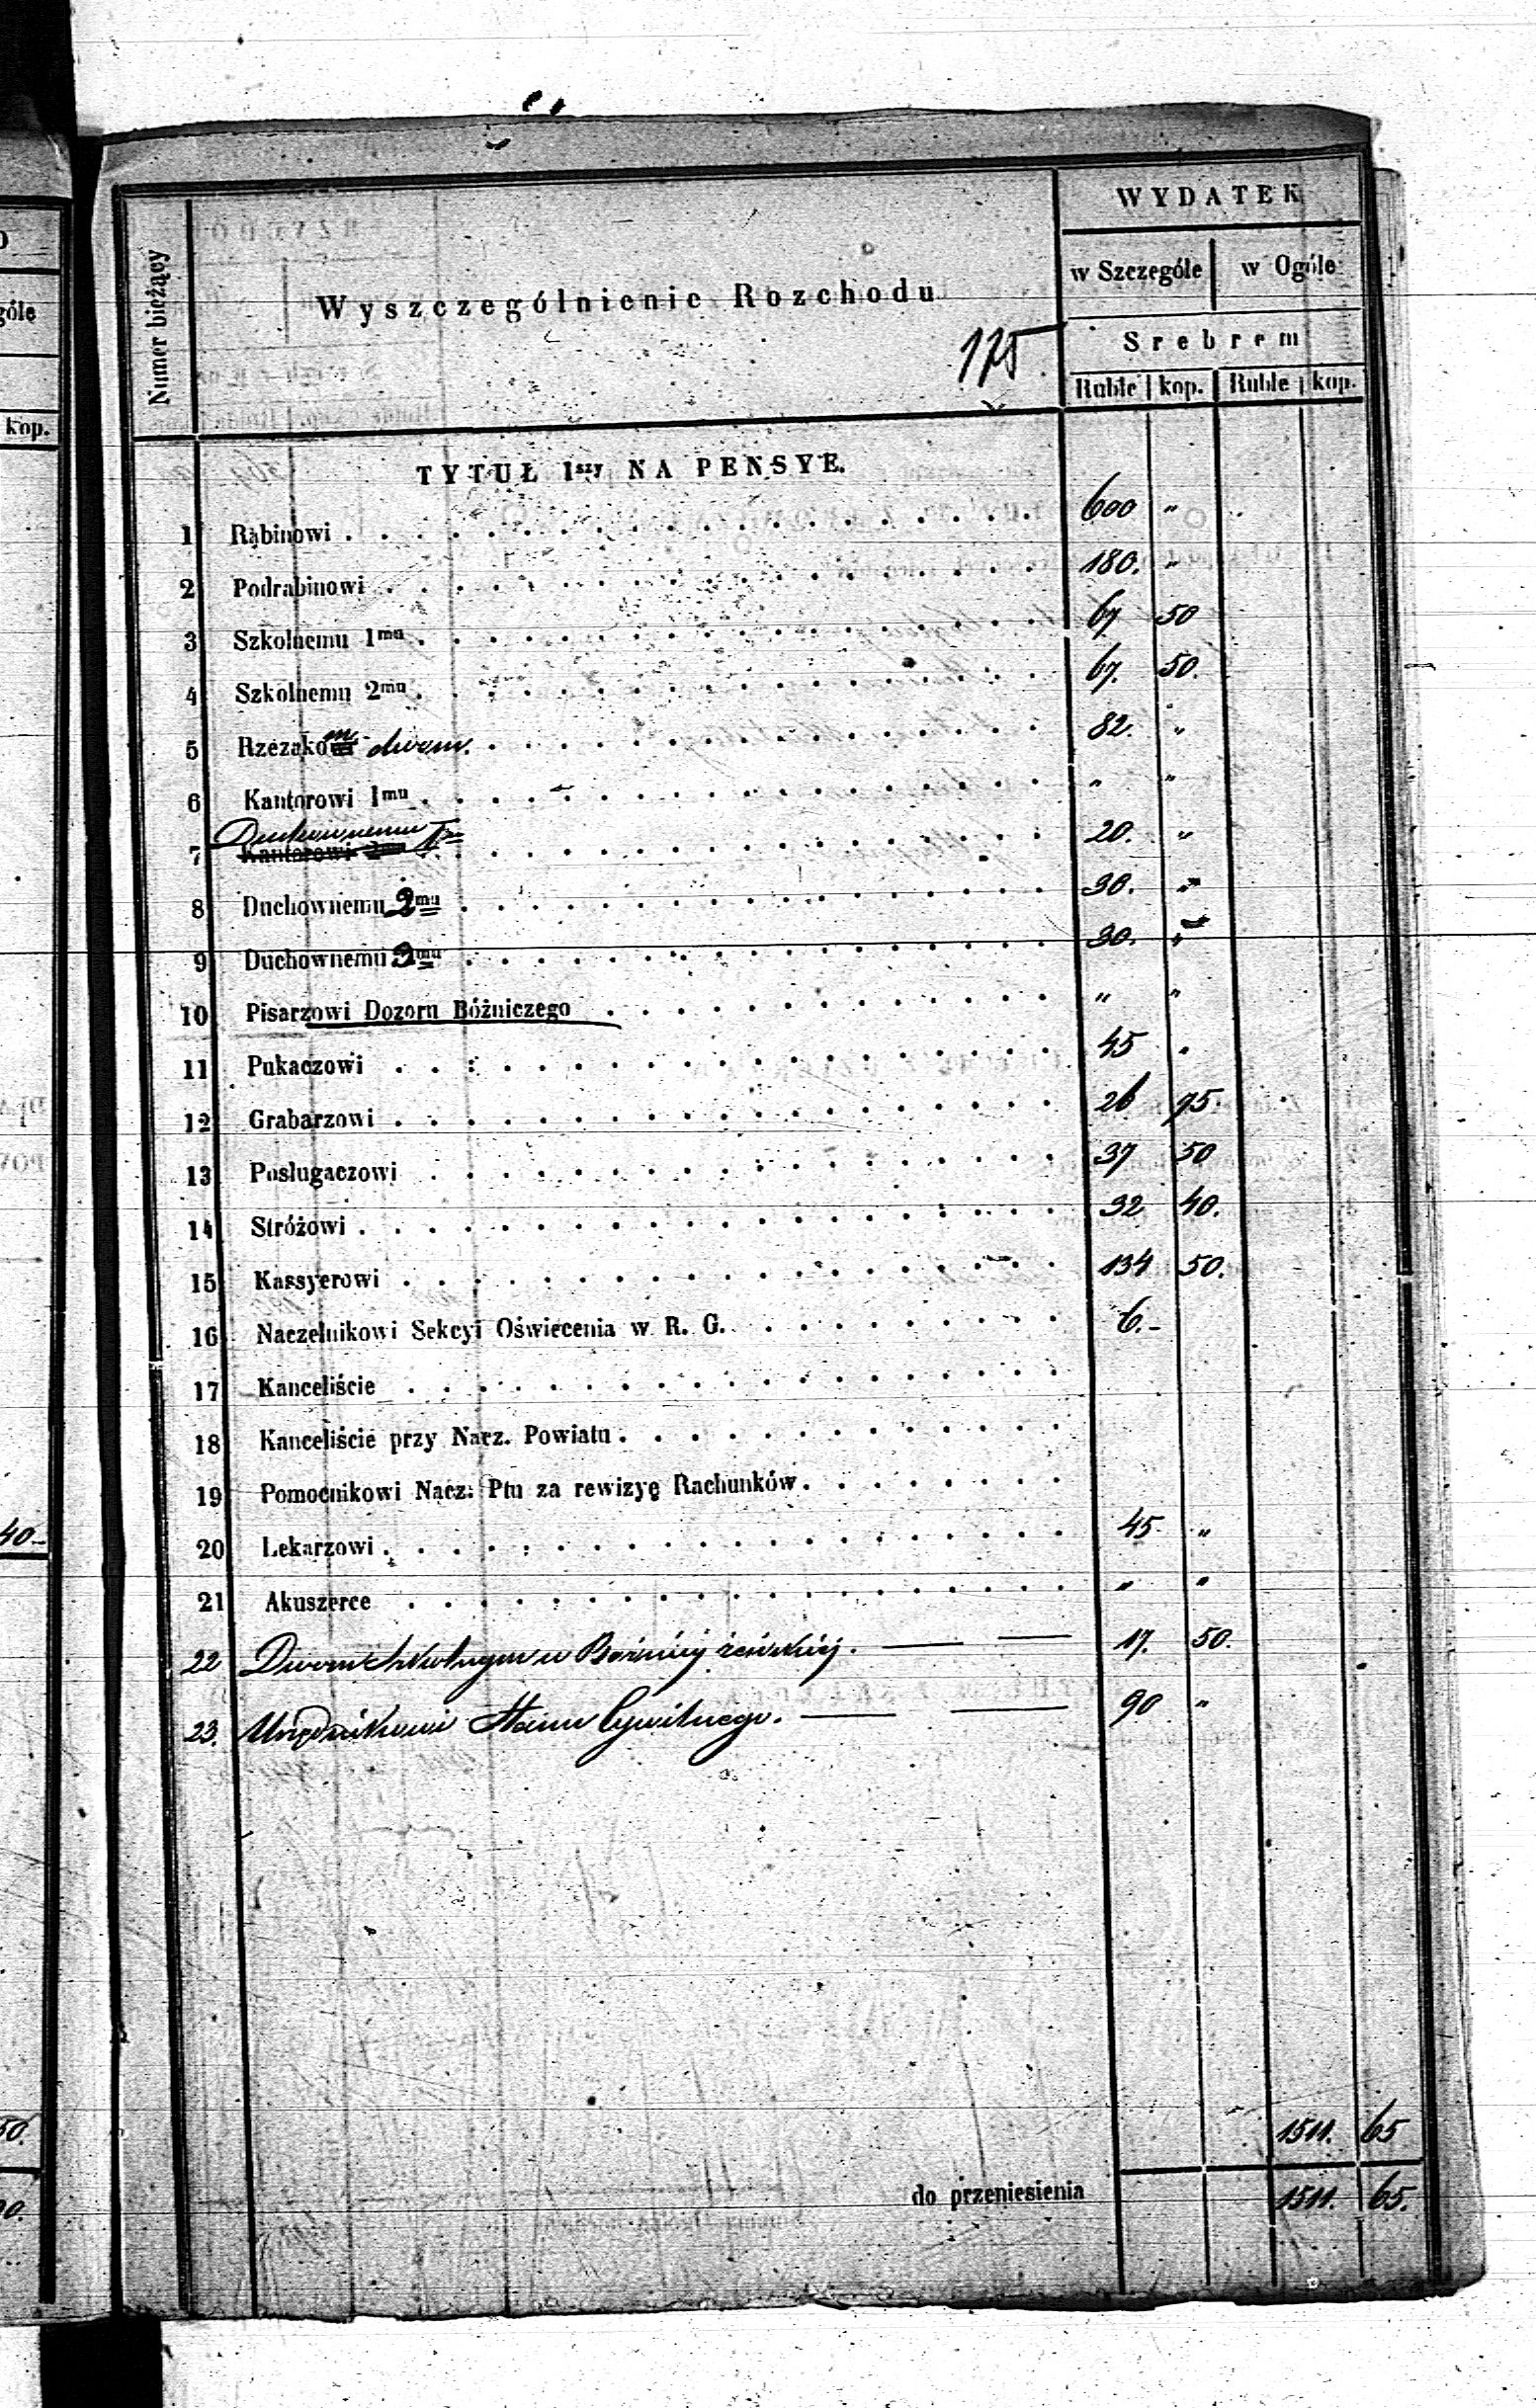 WYDATEK
Numer bieżący
Wyszczególnienie Rozchodu
w Szczególe w Ogóle
175
Srebrem
Ruble kop. Ruble kop.
kop.
TYTUŁ 1szy NA PENSYE.
1 Rabinowi 600 "
2 Podrabinowi 180. "
3 Szkolnemu 1mu 67 50
4 Szkolnemu 2mu 67. 50.
5 Rzezakom dwom. 82. "
6 Kantorowi 1mu " "
7 Duchownemu 1mu Kantorowi 2mu 20. "
8 Duchownemu 2mu 30. "
9 Duchownemu 3mu 30. "
10 Pisarzowi Dozoru Bóżniczego " "
11 Pukaczowi 45 "
12 Grabarzowi 26 75.
13 Posługaczowi 37 50
14 Stróżowi 32 40.
15 Kassyerowi 134 50.
16 Naczelnikowi Sekcyi Oświecenia w R. G. 6.-
17 Kanceliście
18 Kanceliście przy Nacz. Powiatu
19 Pomocnikowi Nacz. Ptu za rewizyę Rachunków
20 Lekarzowi 45 "
21 Akuszerce " "
22 Dwom szkolnym w Bóżnicy żeńskiej. 17. 50.
23. Urzędnikowi Stanu Cywilnego. 90 "
40-
1511. 65
do przeniesienia 1511. 65.